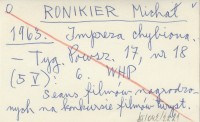 RONIKIER Michał
1963. Impreza chybiona.
– Tyg. Powsz. 17, nr 18
(5 V) s. 6. WHP
Seans filmów nagrodzo-
nych na konkursie filmów turyst.